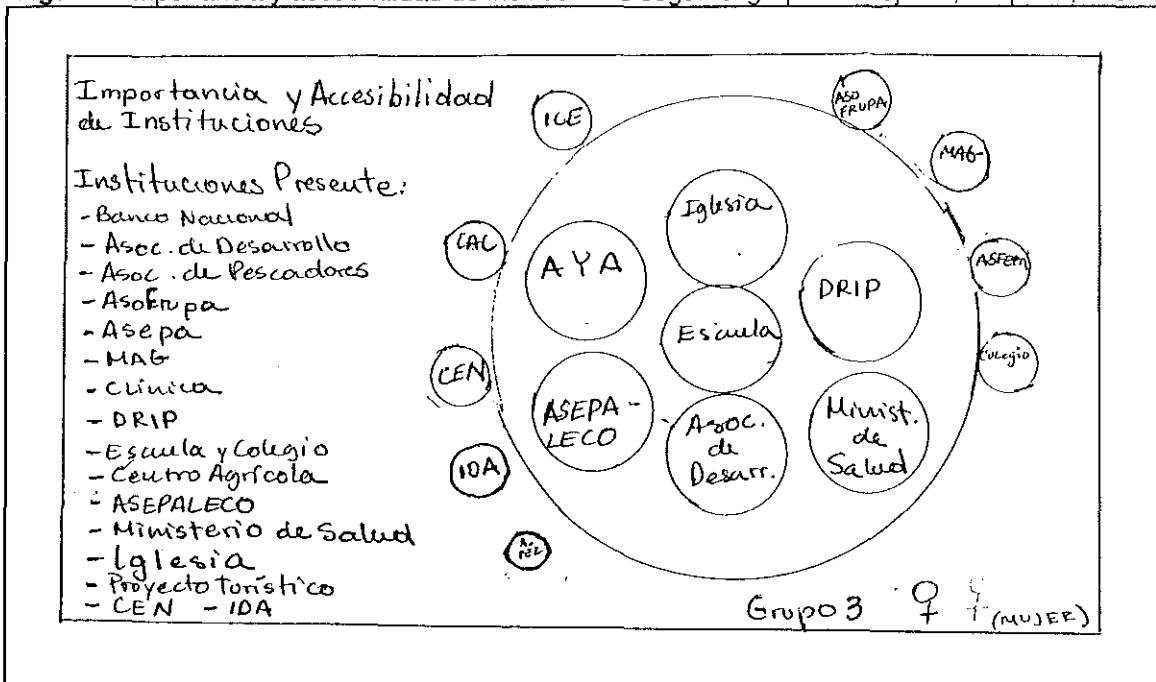 Importancia y Accesibilidad
de Instituciones
Instituciones Presente:
- Banco Nacional
- Asoc. de Desarrollo
- Asoc. de Pescadores
- Asofrupa
- Asepa
- MAG
- Clínica
- DRIP
- Escuela y Colegio
- Centro Agrícola
- ASEPALECO
- Ministerio de Salud
- Iglesia
- Proyecto Turístico
- CEN - IDA
ICE
ASO
FRUPA
MAG
CAC
AYA
Iglesia
DRIP
ASFEM
Escuela
Colegio
CEN
ASEPA-
LECO
Asoc.
de
Desarr.
Minist.
de
Salud
IDA
Grupo 3 ♀
(MUJER)